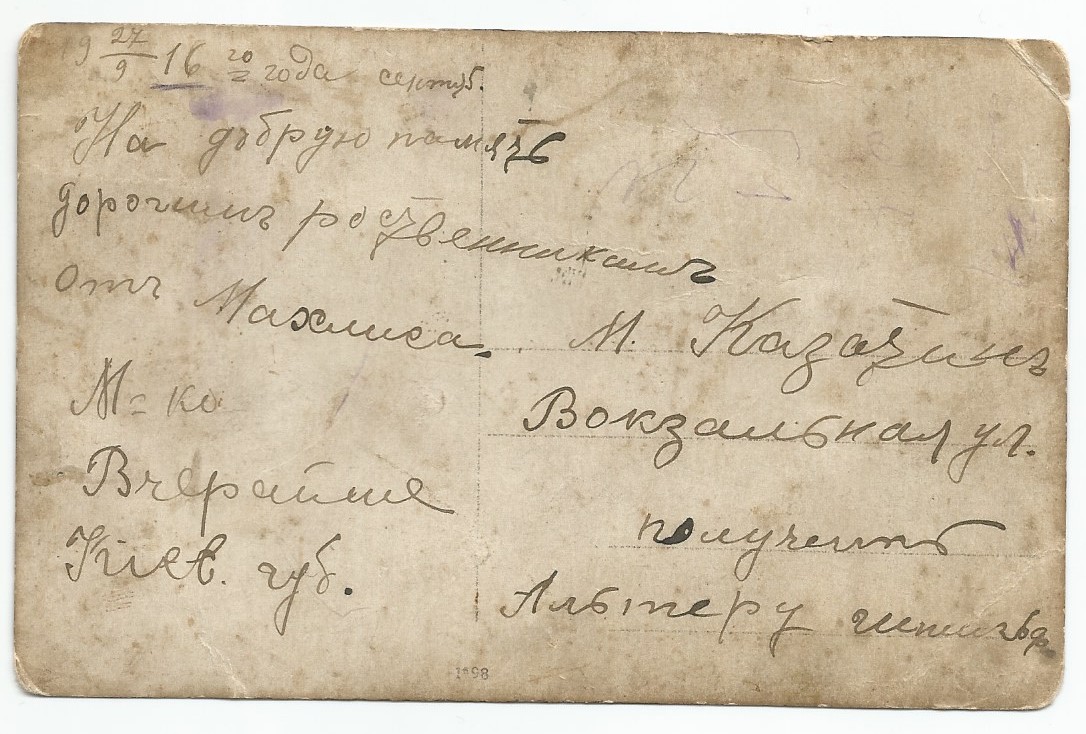 19 27/9 16 го года сентяб.
На добрую память
дорогимъ родственникамъ
отъ Махлиса.
М=ко
Вчерайше
Кіев. губ.
М. Казатинъ
Вокзальная ул.
получить
Альтеру